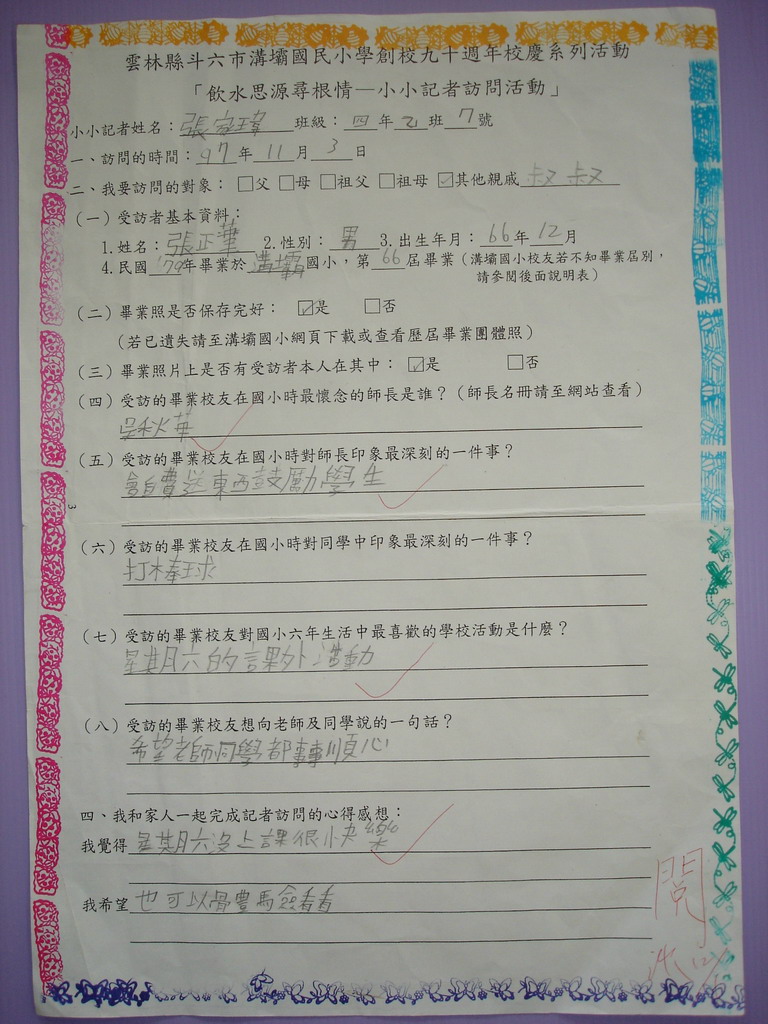 雲林縣斗六市溝壩國民小學創校九十週年校慶系列活動
「飲水思源尋根情—小小記者訪問活動」
小小記者姓名：張家瑋 班級：四年乙班7號
一、訪問的時間：97年11月3日
二、我要訪問的對象：□父 □母 □祖父 □祖母 ☑其他親戚 叔叔
（一）受訪者基本資料：
1.姓名：張正華 2.性別：男 3.出生年月：66年12月
4.民國79年畢業於溝壩國小，第66屆畢業（溝壩國小校友若不知畢業屆別，
請參閱後面說明表）
（二）畢業照是否保存完好： ☑是 □否
（若已遺失請至溝壩國小網頁下載或查看歷屆畢業團體照）
（三）畢業照片上是否有受訪者本人在其中： ☑是 □否
（四）受訪的畢業校友在國小時最懷念的師長是誰？（師長名冊請至網站查看）
吳秋華
（五）受訪的畢業校友在國小時對師長印象最深刻的一件事？
會自費送東西鼓勵學生
（六）受訪的畢業校友在國小時對同學中印象最深刻的一件事？
打棒球
（七）受訪的畢業校友對國小六年生活中最喜歡的學校活動是什麼？
星期六的課外活動
（八）受訪的畢業校友想向老師及同學說的一句話？
希望老師同學都事事順心
四、我和家人一起完成記者訪問的心得感想：
我覺得 星期六沒上課很快樂
我希望 也可以體驗看看
閱